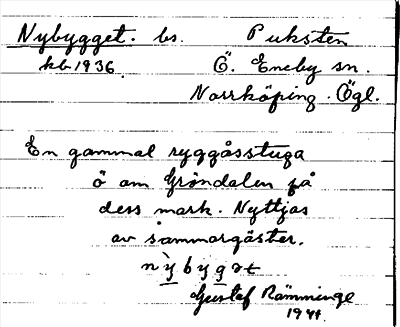 Nybygget. bs. Puksten
kb 1936 Ö. Eneby sn.
Norrköping. Ögl.
En gammal ryggåsstuga
ö om Gröndalen på
dess mark. Nyttjas
av sommargäster.
nỳbygət
Gustef Rämminge
1941